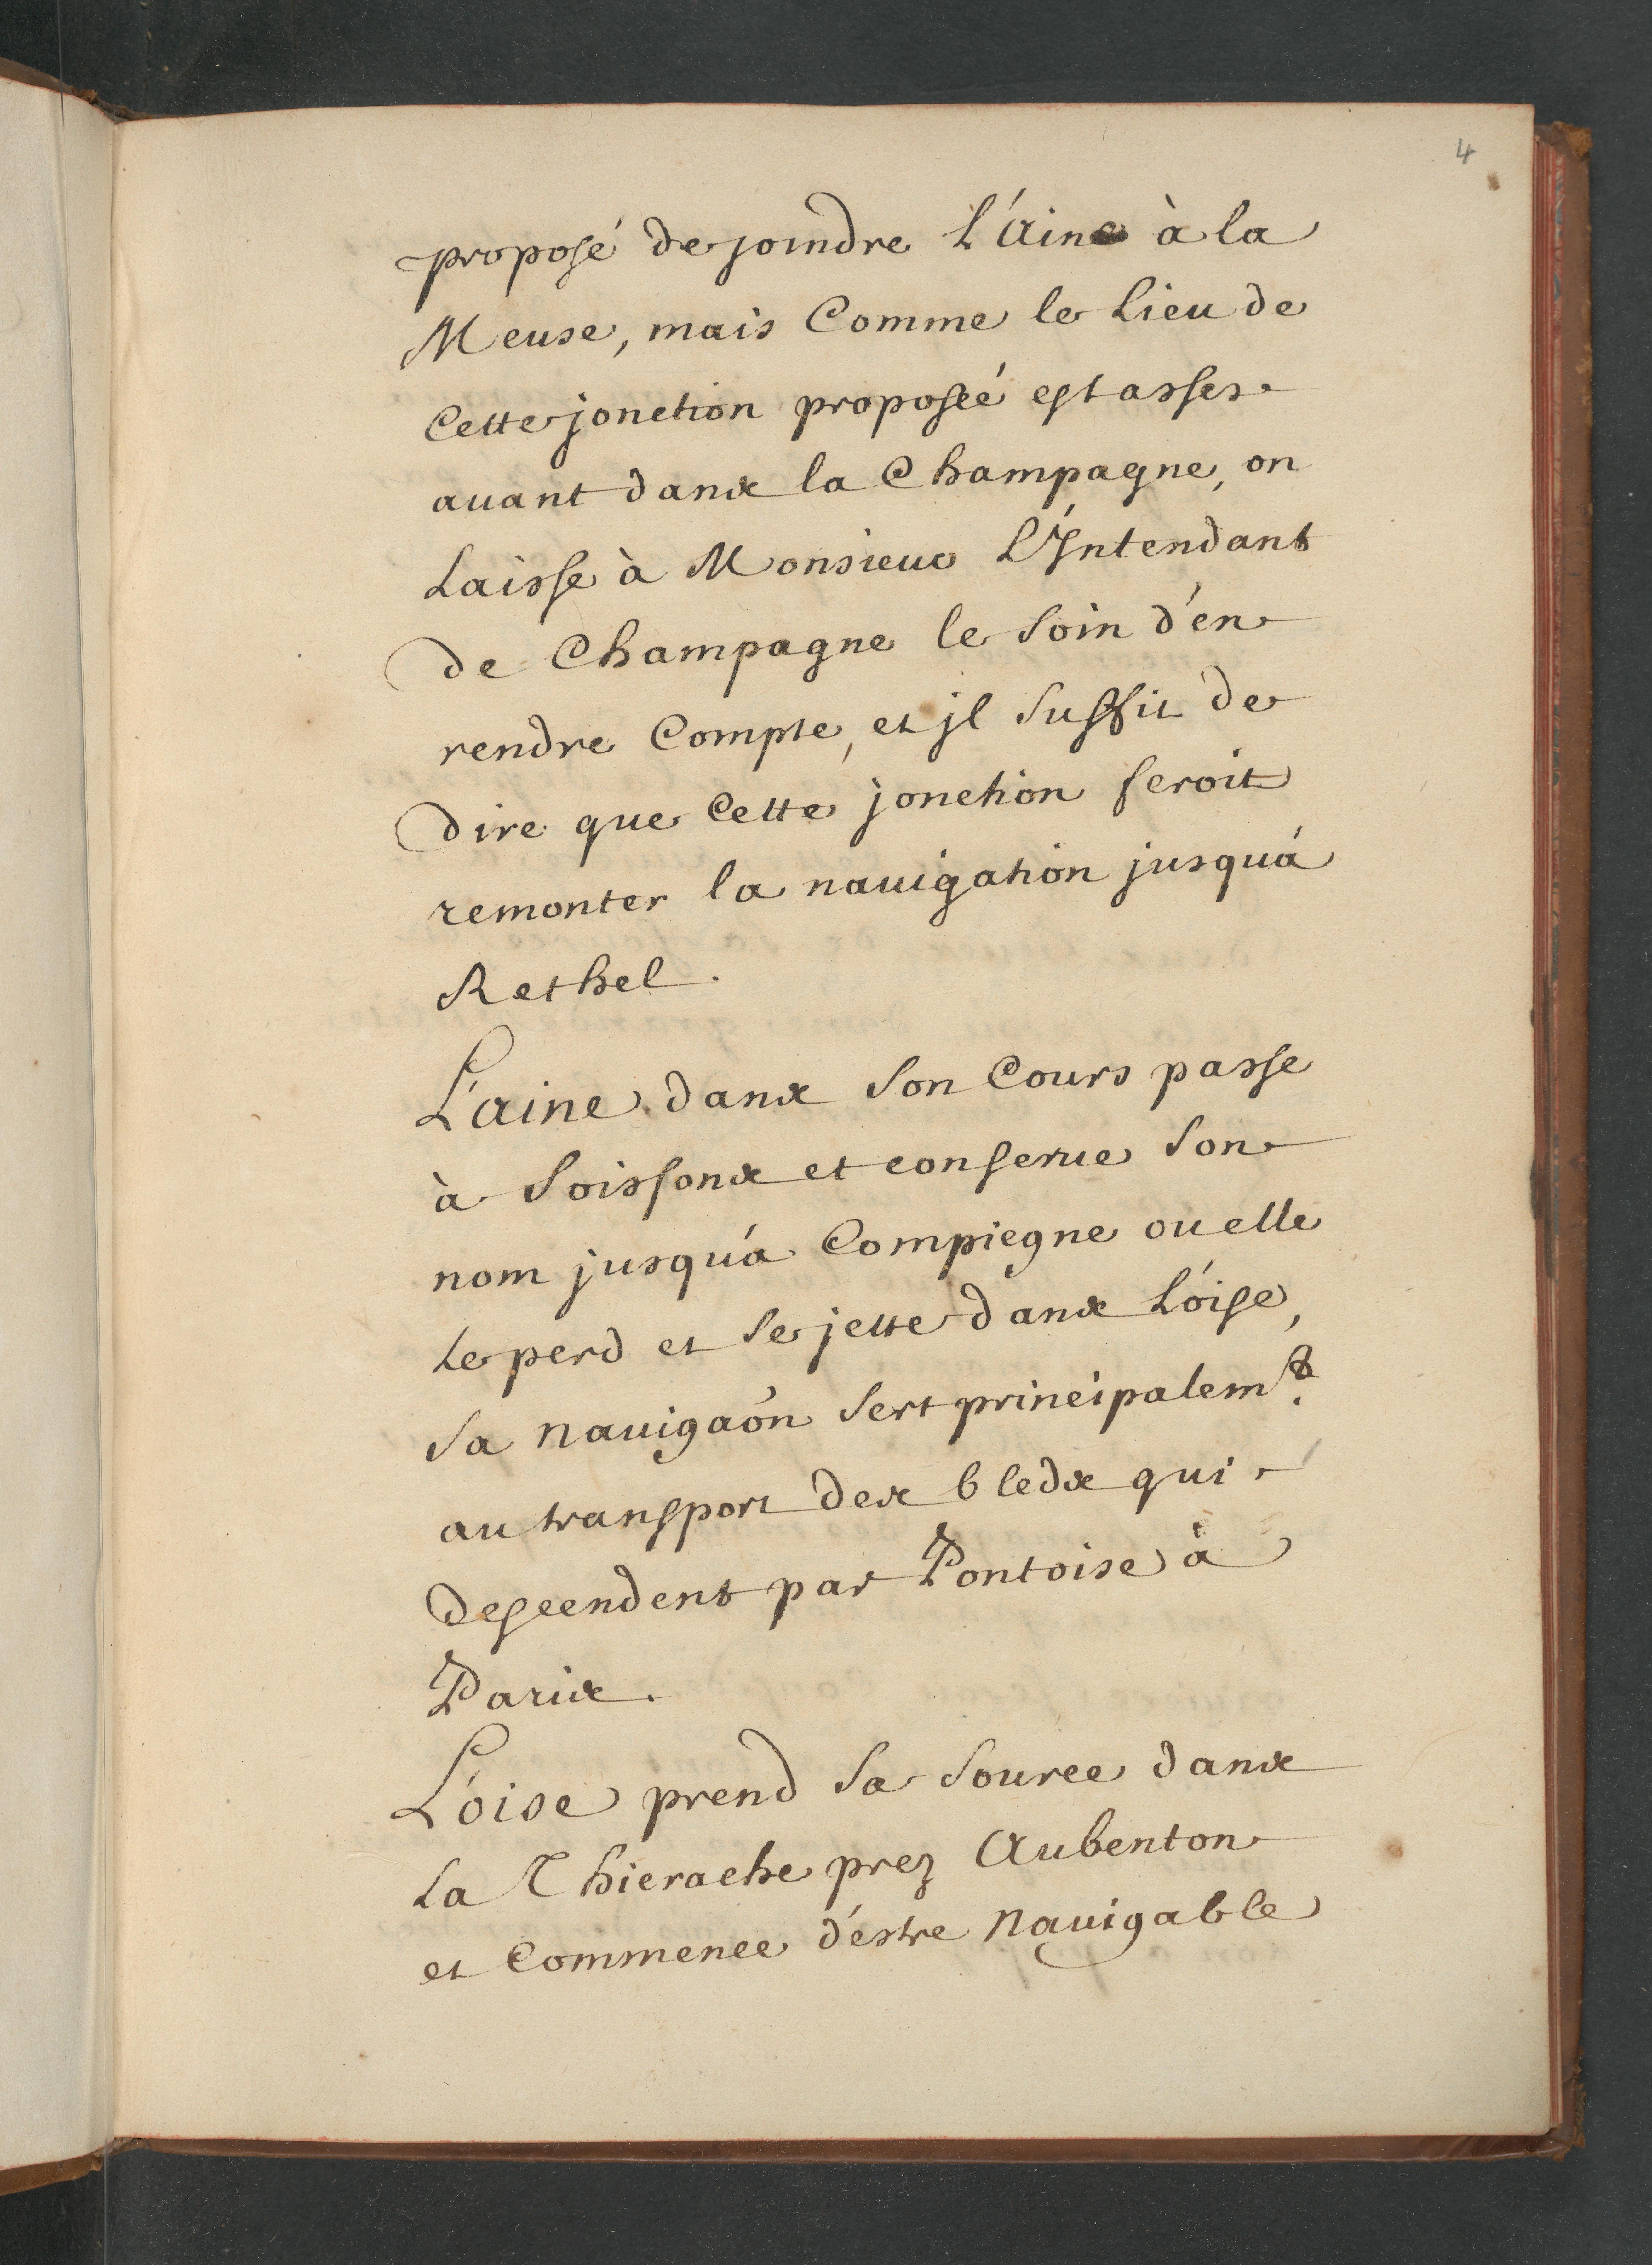 4
proposé de joindre L'Aine à la
Meuse, mais Comme le Lieu de
Cette jonction proposeé est asses
auant dans la Champagne, on
Laisse à Monsieur L'Intendant
de Champagne le Soin d'en
rendre Compte, et jl Suffit de
dire que Cette jonction feroit
remonter la nauigation jusqu'á
Rethel.
L'aine dans Son Cours passe
à Soissons et conserue Son
nom jusqu'a Compiegne ou elle
Le perd et Se jette dans L'oise,
Sa nauigaôn Sert principalemt.
au transport des bleds qui
descendent par Pontoise à
Paris.
L'oise prend Sa Source dans
La Thierache prez Aubenton
et Commence d'estre nauigable